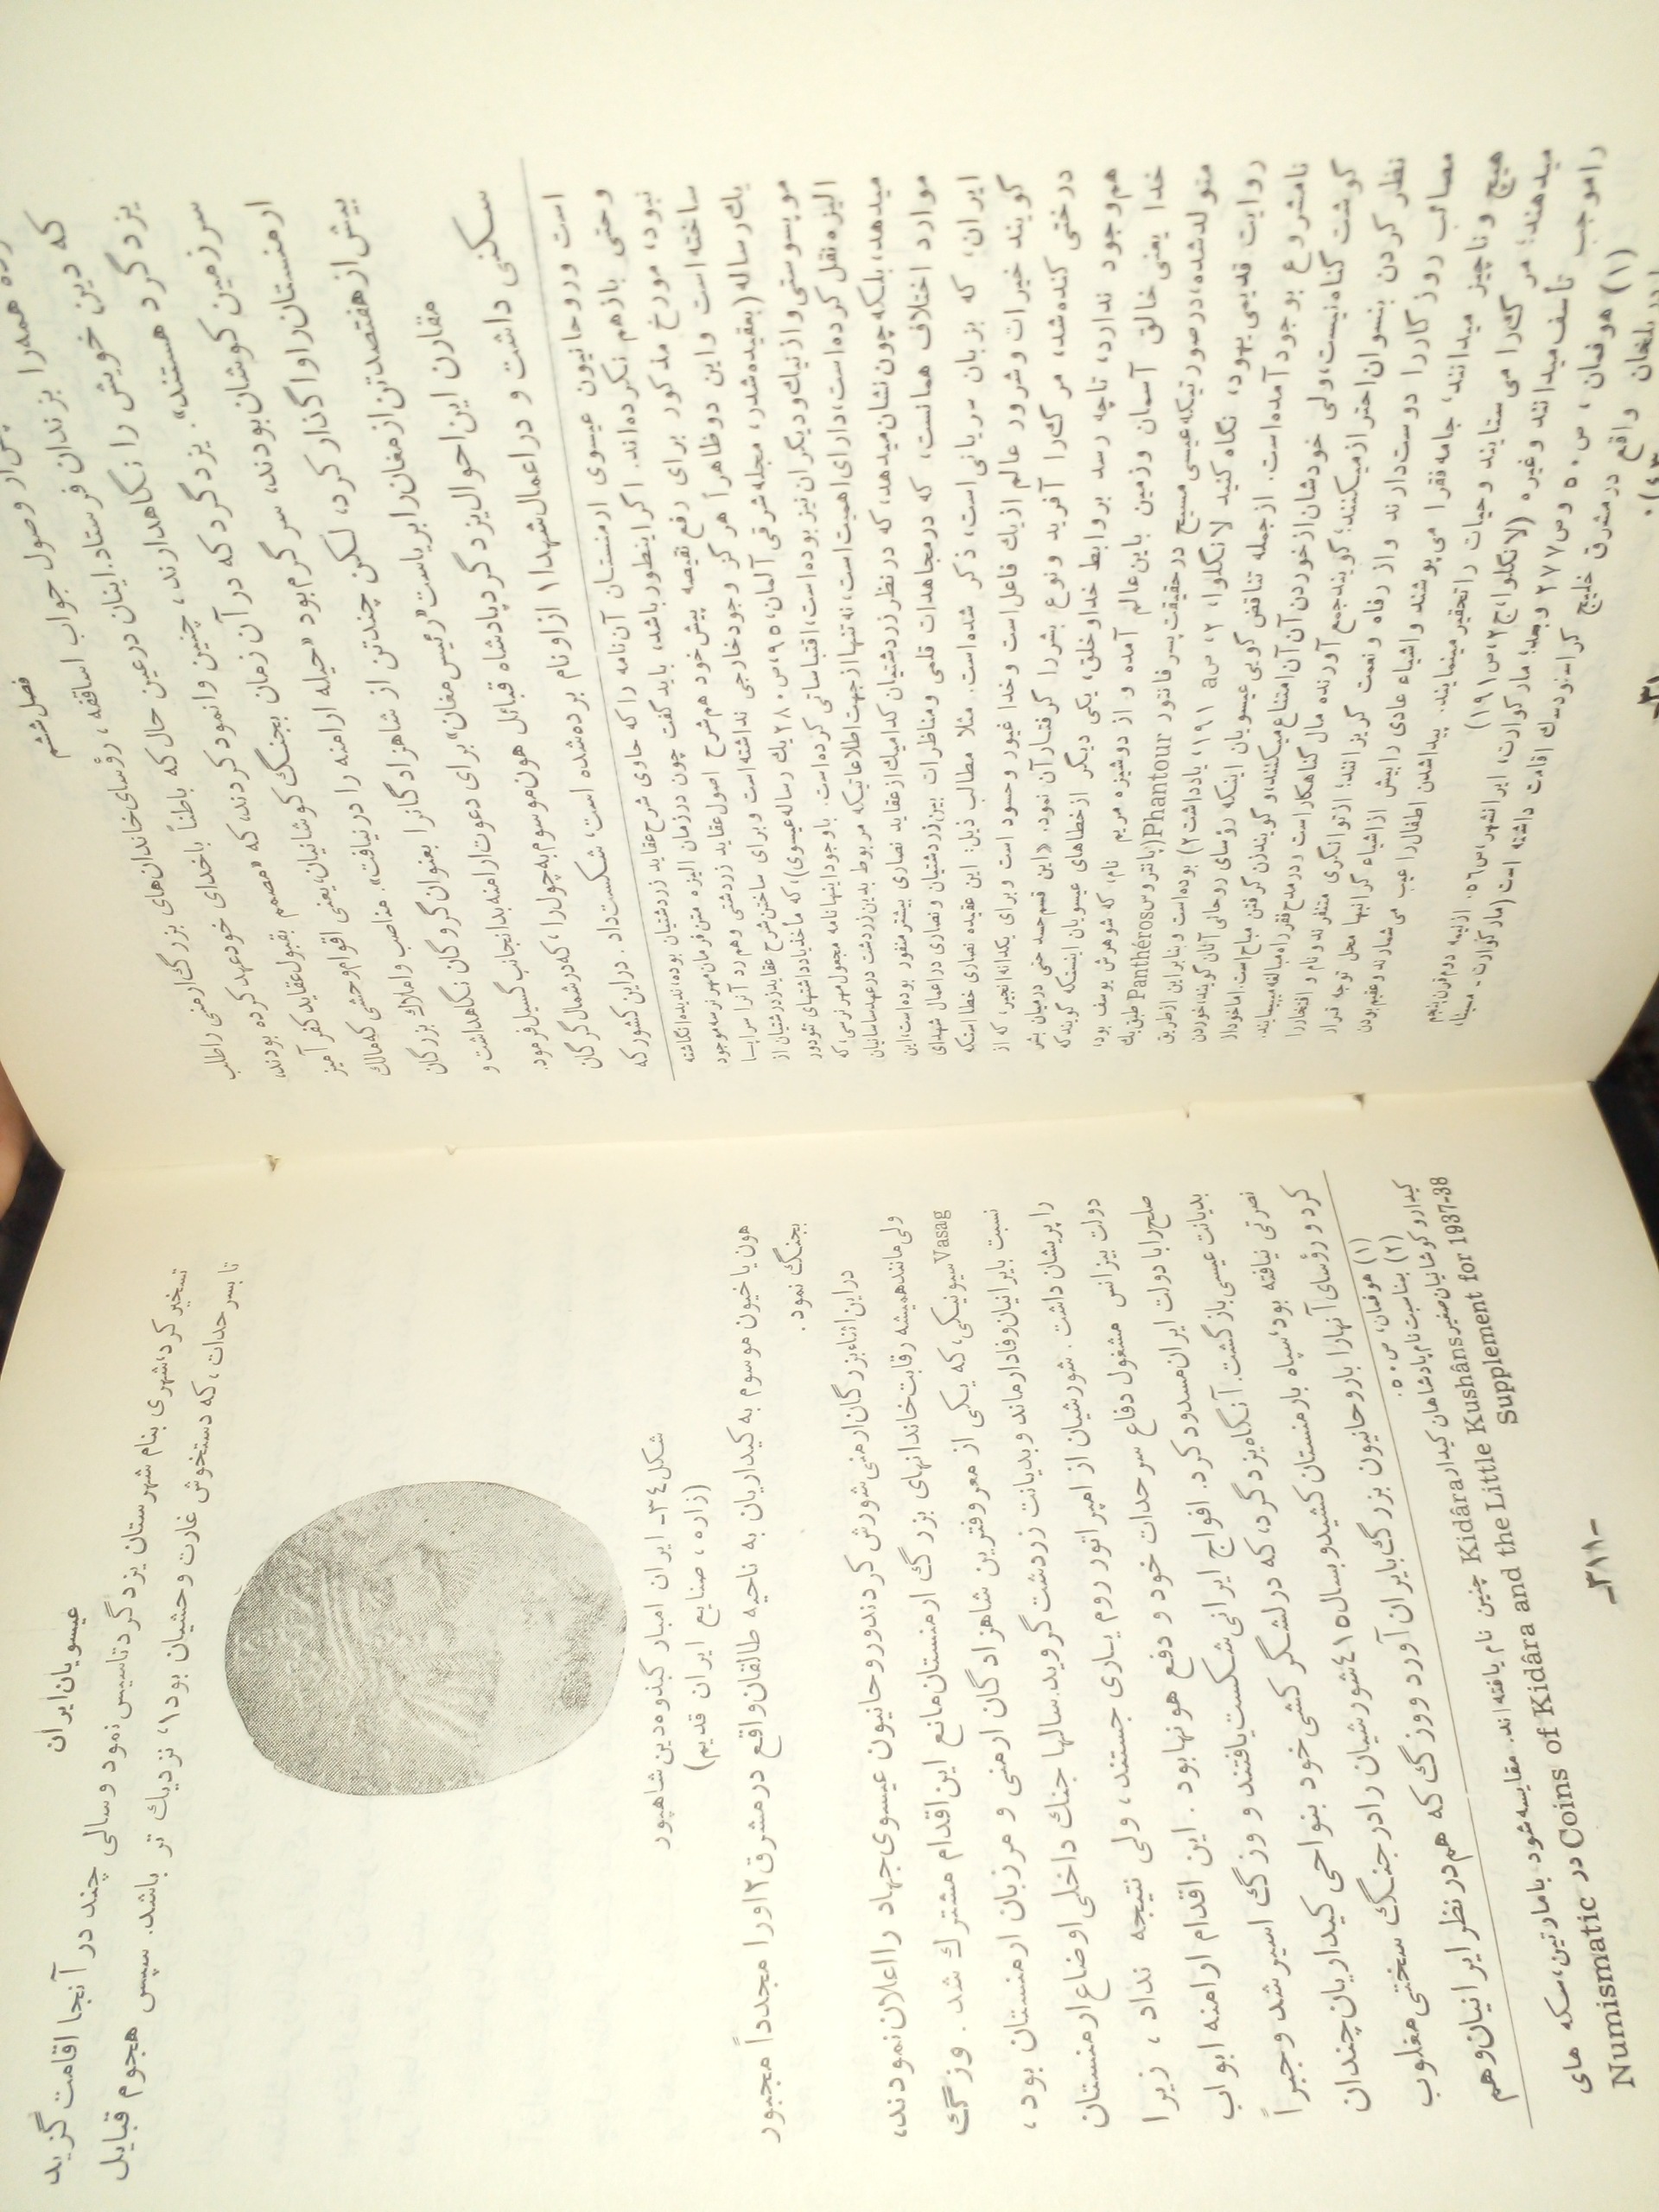 فصل ششم
پس از وصول جواب اساقفه، رؤسای خاندان‌های بزرگ ارمنی را طلب
همه را بزندان فرستاد. اینان در عین حال که باطناً با خدای خود عهد کرده بودند،
که دین خویش را نگاهدارند، چنین وانمود کردند، که «مصمم بقبول عقاید کفر آمیز
یزدگرد هستند». یزدگرد که در آن زمان بجنگ کوشانیان، یعنی اقوام وحشی که مالك
سرزمین کوشان بودند، سرگرم بود «حیله ارامنه را درنیافت». مناصب و املاك بزرگان
ارمنستان را واگذار کرد، لکن چندتن از شاهزادگانرا بعنوان گروگان نگاهداشت و
بیش از هفتصدتن از مغان را بریاست «رئیس مغان» برای دعوت ارامنه بدانجانب گسیل فرمود.
مقارن این احوال یزدگرد پادشاه قبائل هون موسوم به چول را، که در شمال گرگان
سکنی داشت و در اعمال شهدا۱ از او نام برده شده است، شکست داد. در این کشور که
است و روحانیون عیسوی ارمنستان آن نامه را که حاوی شرح عقاید زردشتیان بوده، ندیده انگاشته
و حتی بازهم نکرده‌اند. اگر اینطور باشد، باید گفت چون در زمان الیزه متن فرمان مهر نرسه موجود
نبود، مورخ مذکور برای رفع نقیصه پیش خود هم شرح اصول عقاید زردشتی و هم رد آنرا سراپا
ساخته است و این دو ظاهراً هرگز وجود خارجی نداشته است و برای ساختن شرح عقاید زردشتیان از
یك رساله (بعقیده شدر، مجله شرقی آلمان، ۹۵، ص ۲۸۰ یك رساله عیسوی)، که مأخذ یادداشتهای تئودور
موپسوستی و ازنیك و دیگران نیز بوده است، اقتباساتی کرده است. با وجود اینها نامه مجعول مهر نرسی، که
الیزه نقل کرده است، دارای اهمیت است، نه تنها از جهت اطلاعاتیکه مربوط بدین زردشت در عهد ساسانیان
میدهد، بلکه چون نشان میدهد، که در نظر زردشتیان کدامیك از عقاید نصاری بیشتر منفور بوده است، این
موارد اختلاف همانست، که در مجاهدات قلمی و مناظرات بین زردشتیان و نصاری در اعمال شهدای
ایران، که بزبان سریانی است، ذکر شده است. مثلا مطالب ذیل: این عقیده نصاری خطا استکه
گویند خیرات و شرور عالم از یك فاعل است و خدا غیور و حسود است و برای یکدانه انجیر، که از
درختی کنده شد، مرگ را آفرید و نوع بشر را گرفتار آن نمود. «این قسم حسد حتی در میان بشر
هم وجود ندارد، تا چه رسد بروابط خدا و خلق، یکی دیگر از خطاهای عیسویان اینستکه گویند که
خدا یعنی خالق آسمان و زمین باین عالم آمده و از دوشیزه مریم نام، که شوهرش یوسف بود،
متولد شده، در صورتیکه عیسی مسیح در حقیقت پسر فانتور Phantour (پانتروس Panthéros طبق یك
روایت قدیمی یهود، نگاه کنید لانگلوا، ۲، ص ۱۹۱ a، یادداشت ۲) بوده است و بنابراین از طریق
نامشروع بوجود آمده است. از جمله تناقض گویی عیسویان اینکه رؤسای روحانی آنان گویند، خوردن
گوشت گناه نیست، ولی خودشان از خوردن آن امتناع میکنند، و گویند زن گرفتن مباح است، اما خود از
نظر کردن بنسوان احتراز میکنند؛ گویند جمع آورنده مال گناهکار است و در مدح فقر راه مبالغه میپیمایند.
مصائب روزگار را دوست دارند و از رفاه و نعمت گریزانند؛ از توانگری متنفرند و نام و افتخار را
هیچ و ناچیز میدانند، جامه فقرا می پوشند و اشیاء عادی را بیش از اشیاء گرانبها محل توجه قرار
میدهند؛ مرگ را می ستایند و حیات را تحقیر مینمایند. پیداشدن اطفال را عیب می شمارند و عقیم بودن
را موجب تأسف میدانند وغیره (لانگلوا، ج ۲، ص ۱۹۱)
(۱) هوفمان، ص ۵۰ و ص ۲۷۷ و بعد؛ مارکوارت، ایرانشهر، ص ۵۶. از نیمه دوم قرن پنجم
در بلخان واقع در مشرق خلیج اقامت داشته است (مارکوارت -
عیسویان ایران
تسخیر کرد، شهری بنام شهرستان یزدگرد تاسیس نمود و سالی چند در آنجا اقامت گزید
تا بسرحدات، که دستخوش غارت وحشیان بود۱، نزدیك تر باشد. سپس هجوم قبایل
شکل ۳٤- ایران امبار کبذوه دین شاهپور
(زاره، صنایع ایران قدیم)
هون یا خیون موسوم به کیداریان به ناحیه طالقان واقع در مشرق۲ او را مجدداً مجبور
بجنگ نمود.
در این اثناء بزرگان ارمنی شورش کردند و روحانیون عیسوی جهاد را اعلان نمودند،
ولی مانند همیشه رقابت خاندانهای بزرگ ارمنستان مانع این اقدام مشترك شد. وزگ
Vasag سیونیکی، که یکی از معروفترین شاهزادگان ارمنی و مرزبان ارمنستان بود،
نسبت بایرانیان وفادار ماند و بدیانت زردشت گروید. سالها جنك داخلی اوضاع ارمنستان
را پریشان داشت. شورشیان از امپراتور روم یاری جستند، ولی نتیجه نداد، زیرا
دولت بیزانس مشغول دفاع سرحدات خود و دفع هونها بود. این اقدام ارامنه ابواب
صلح را با دولت ایران مسدود کرد. افواج ایرانی شکست یافتند و وزگ اسیر شد و جبراً
بدیانت عیسی باز گشت. آنگاه یزدگرد، که در لشگرکشی خود بنواحی کیداریان چندان
نصرتی نیافته بود، سپاه بارمنستان کشید و بسال ٤۵۱ شورشیان را در جنگ سختی مغلوب
کرد و رؤسای آنهارا با روحانیون بزرگ بایران آورد و وزگ که هم در نظر ایرانیان و هم
(۱) هوفمان، ص ۵۰.
(۲) بمناسبت نام پادشاهان کیدارا Kidâra چنین نام یافته اند. مقایسه شود با مارتین، سکه های
کیدارو کوشانیان صغیر Coins of Kidâra and the Little Kushâns در Numismatic
Supplement for 1937-38
-۳۱۱-